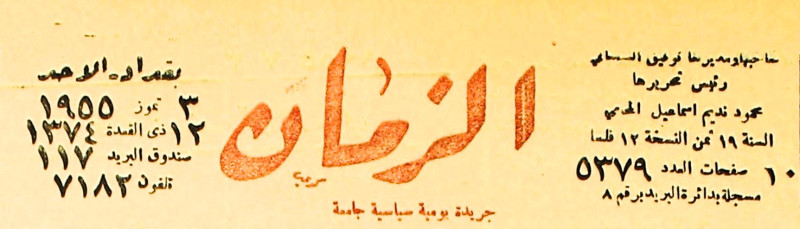 صاحبها ومديرها توفيق السمعاني
رئيس تحريرها
محمود نديم اسماعيل المحامي
السنة ١٩ ثمن النسخة ١٢ فلسا
١٠ صفحات العدد ٥٣٧٩
مسجلة بدائرة البريد برقم ٨
الزمان
جريدة يومية سياسية جامعة
بغداد. الاحد
٣ تموز ١٩٥٥
١٢ ذي القعدة ١٣٧٤
صندوق البريد ١١٧
تلفون ٧١٨٣